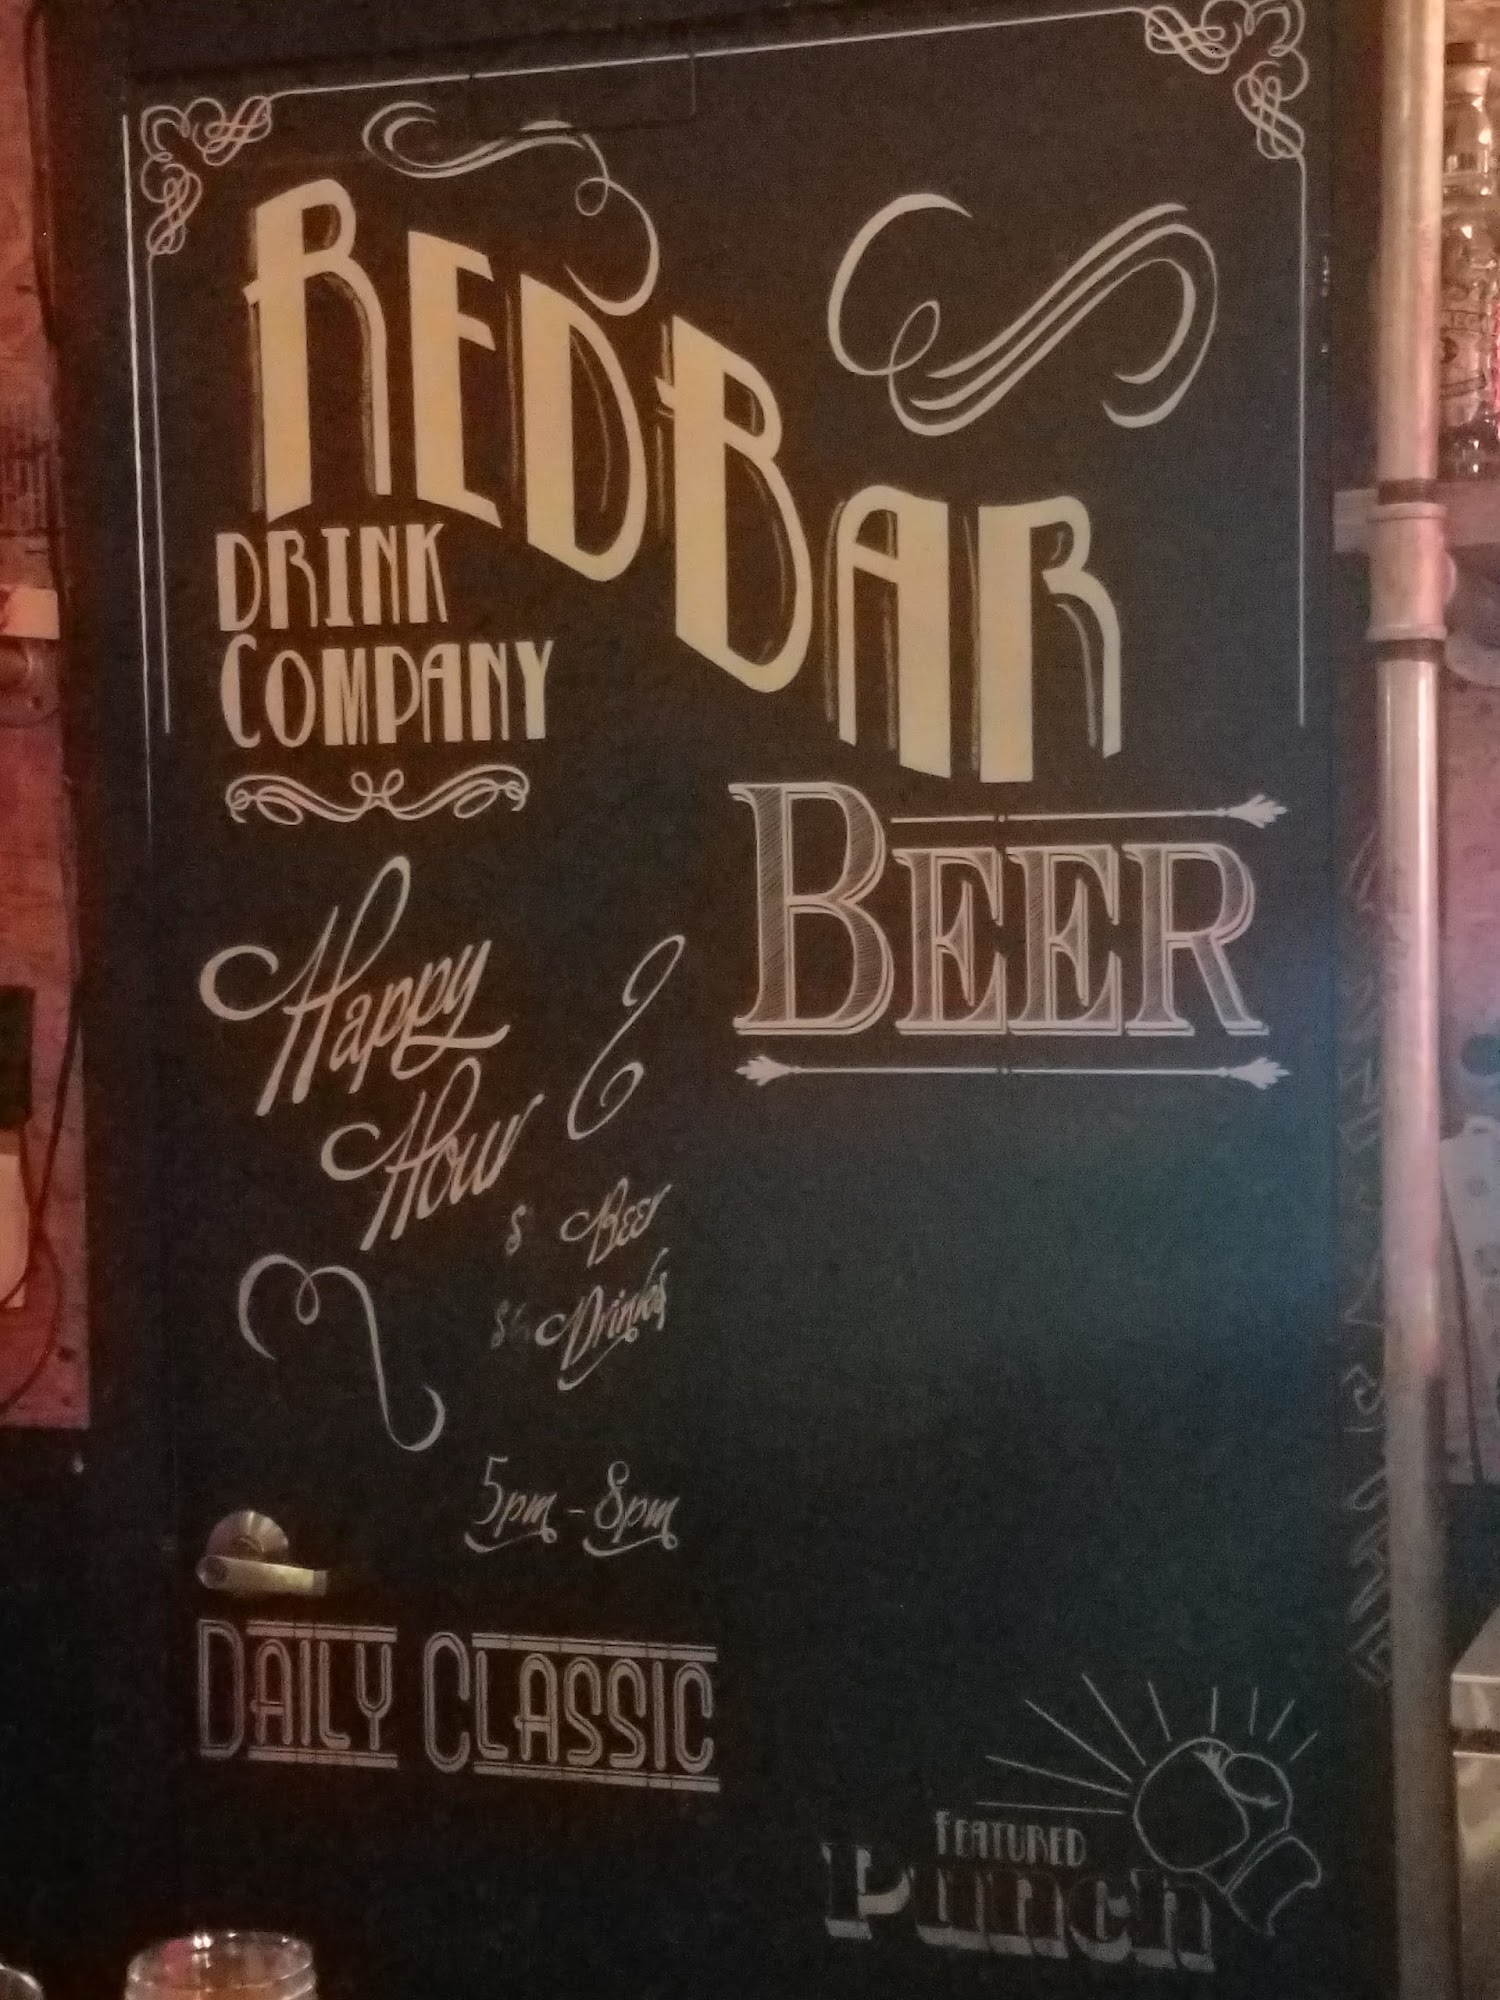 REDBAR
DRINK
COMPANY
BEER
Happy
Hour
$ Beer
Drinks
5pm - 8pm
DAILY CLASSIC
FEATURED
Punch